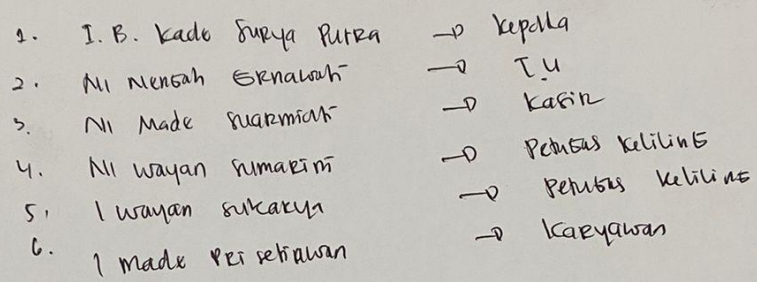 1. I. B. Kade Surya Putra → Kepala
2. Ni Nengah Ernawati → T.U
3. Ni Made Suarmiati → Kasir
4. Ni Wayan Sumarini → Petugas Keliling
5. I Wayan Sukarya → Petugas Keliling
6. I Made Pri Setiawan → Karyawan